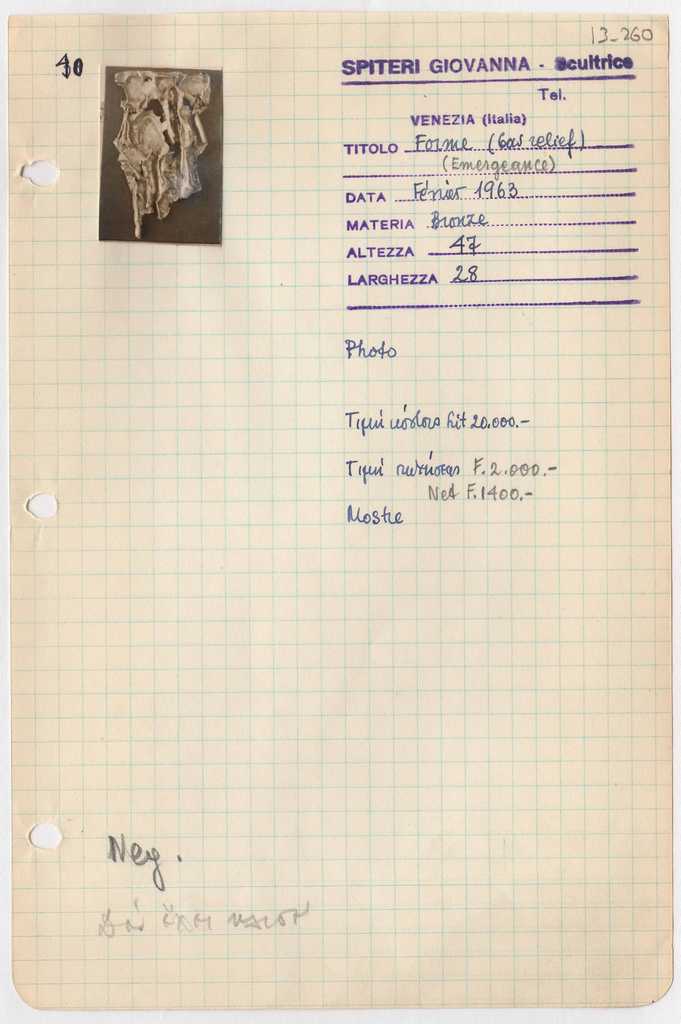 13-260
40
SPITERI GIOVANNA - Scultrice
Tel.
VENEZIA (Italia)
TITOLO Forme (bas relief)
(Emergeance)
DATA Février 1963
MATERIA Bronze
ALTEZZA 47
LARGHEZZA 28
Photo
Τιμή κόστους Lit 20.000.-
Τιμή πωλήσεως F. 2.000.-
Net F. 1400.-
Mostre
Neg.
Δὲν